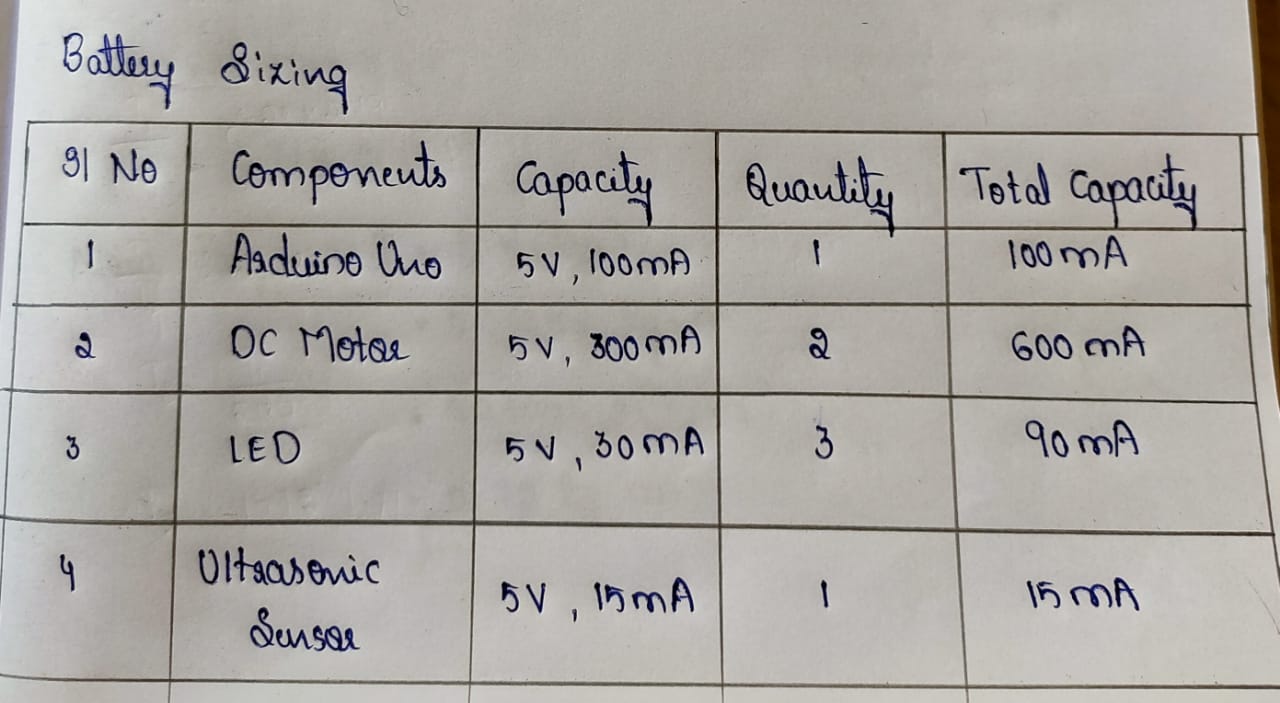 Battery Sizing
Sl No Components Capacity Quantity Total Capacity
1 Arduino Uno 5V, 100mA 1 100mA
2 DC Motor 5V, 300mA 2 600mA
3 LED 5V, 30mA 3 90mA
4 Ultrasonic Sensor 5V, 15mA 1 15mA